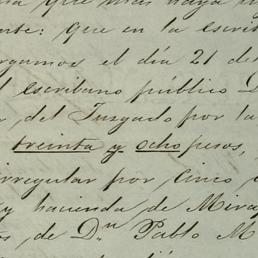 que mas haya
nte: Que en la escrit
rgamos el día 21 de
l escribano público D
r del Juzgado por la
treinta y ocho pesos,
irregular por cinco
y hacienda de Mira
s, de Dn Pablo M